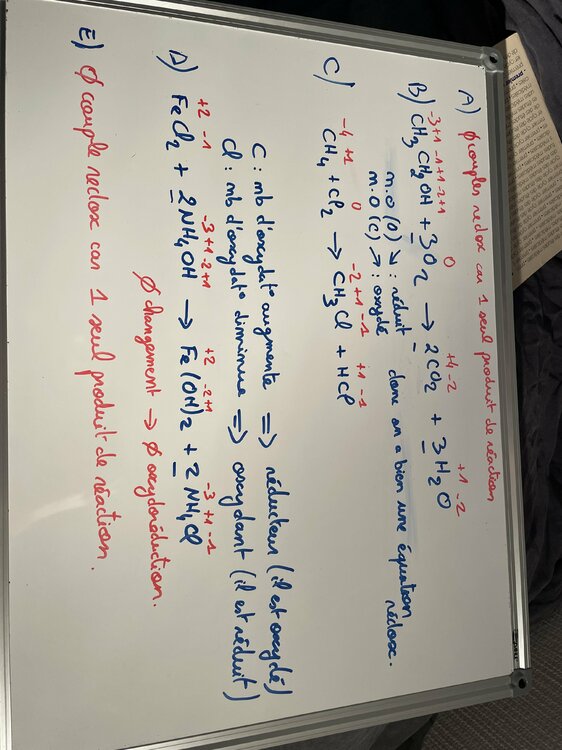 A) ∅ couples redox car 1 seul produit de réaction
-3 +1 -1 +1 -2 +1 0 +4 -2 +1 -2
B) CH3 CH2OH + 3O2 → 2CO2 + 3H2O
m.O (O) ↘ : réduit
m.O (C) ↗ : oxydé
donc on a bien une équation rédox.
-4 +1 0 -2 +1 -1 +1 -1
C) CH4 + Cl2 → CH3Cl + HCl
C : nb d'oxydat° augmente ⇒ réducteur (il est oxydé)
Cl : nb d'oxydat° diminue ⇒ oxydant (il est réduit)
+2 -1 -3 +1 -2 +1 +2 -2 +1 -3 +1 -1
D) FeCl2 + 2NH4OH → Fe(OH)2 + 2NH4Cl
∅ changement → ∅ oxydoréduction.
E) ∅ couple redox car 1 seul produit de réaction.